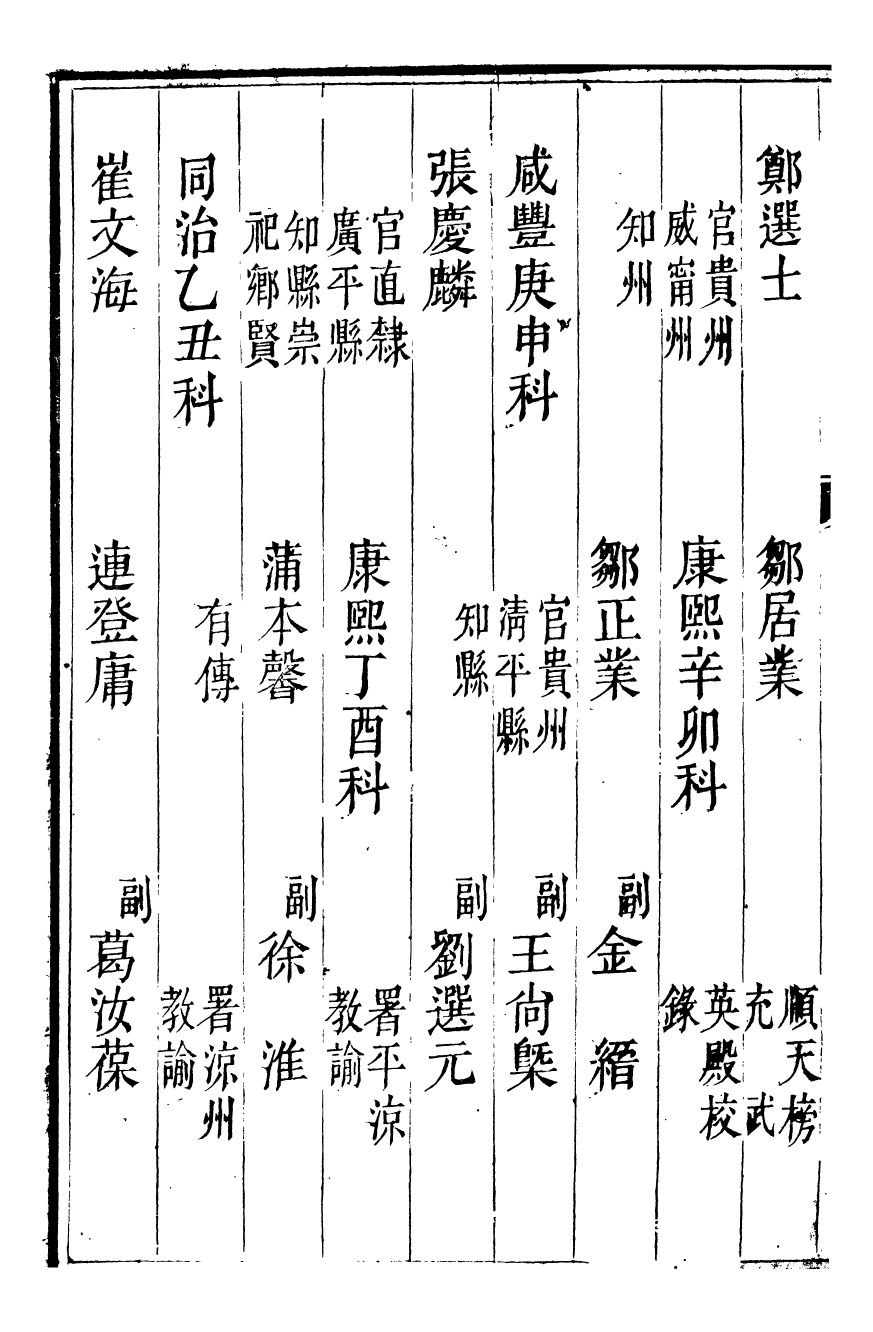 鄭選士
官貴州
威甯州
知州
咸豐庚申科
張慶麟
官直隸
廣平縣
知縣崇
祀鄉賢
同治乙丑科
崔文海
鄒居業
康熙辛卯科
鄒正業
官貴州
清平縣
知縣
康熙丁酉科
蒲本馨
有傳
連登庸
順天榜
充 武
英殿校
錄
副金 縉
副王尙槩
副劉選元
署平涼
教諭
副徐 淮
署涼州
教諭
副葛汝葆